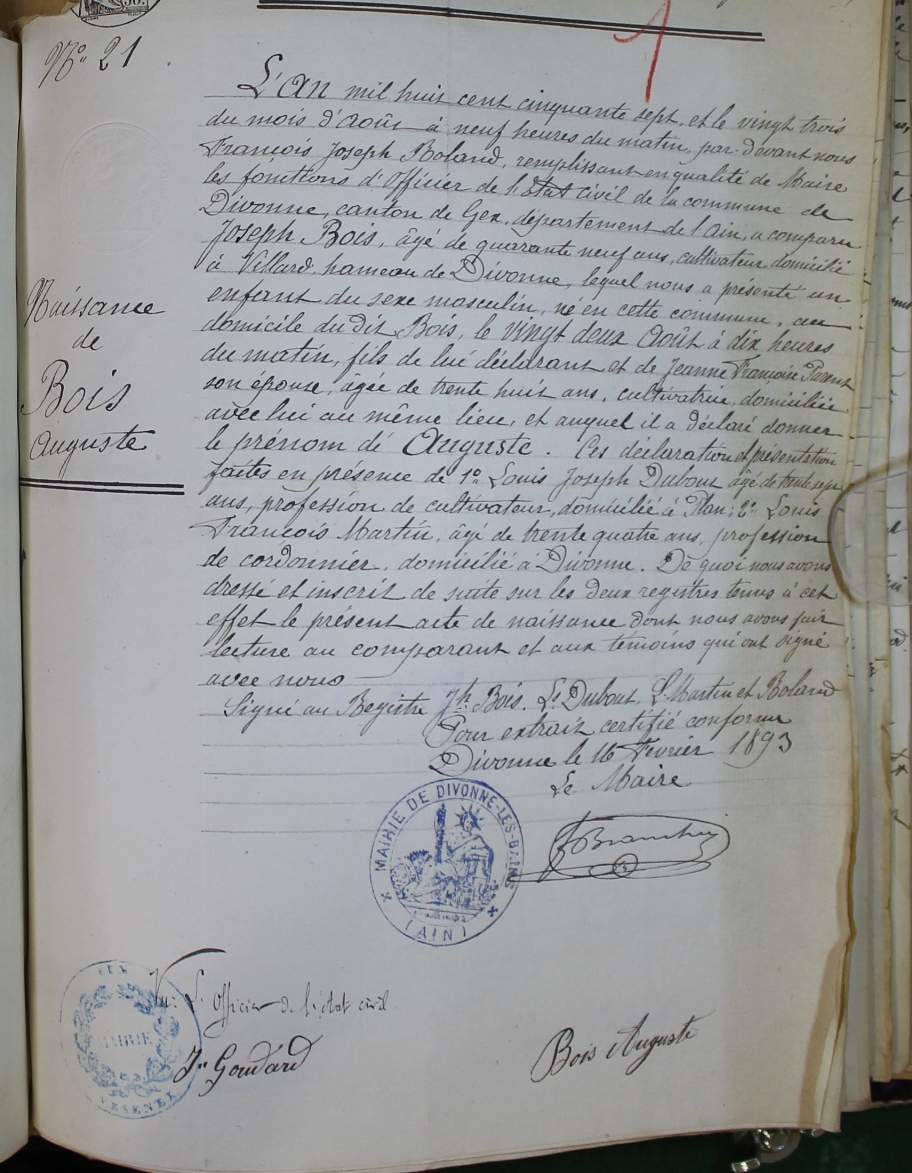 N° 21
L'An mil huit cent cinquante sept, et le vingt trois
du mois d'Août à neuf heures du matin, par-devant nous
François Joseph Roland, remplissant en qualité de Maire
les fonctions d'Officier de l'Etat civil de la commune de
Divonne, canton de Gex, département de l'Ain, a comparu
Joseph Bois, âgé de quarante neuf ans, cultivateur domicilié
à Villard, hameau de Divonne, lequel nous a présenté un
enfant du sexe masculin, né en cette commune, au
domicile du dit Bois, le vingt deux Août à dix heures
du matin, fils de lui déclarant et de Jeanne Françoise Parent
son épouse, âgée de trente huit ans, cultivatrice, domiciliée
avec lui au même lieu, et auquel il a déclaré donner
le prénom de Auguste. Ces déclaration et présentation
faites en présence de 1° Louis Joseph Dubout âgé de trente sept
ans, profession de cultivateur, domicilié à Plan; 2° Louis
François Martin, âgé de trente quatre ans, profession
de cordonnier, domicilié à Divonne. De quoi nous avons
dressé et inscrit de suite sur les deux registres tenus à cet
effet le présent acte de naissance dont nous avons fait
lecture au comparant et aux témoins qui ont signé
avec nous
Signé au Registre Jh Bois, Ls Dubout, L. Martin et Roland
Pour extrait certifié conforme
Divonne le 16 Février 1893
Le Maire
Naissance
de
Bois
Auguste
MAIRIE DE DIVONNE-LES-BAINS
(AIN)
Vu: L'Officier de l'état civil
Jn Goudard
Bois Auguste
MAIRIE
VESENEX